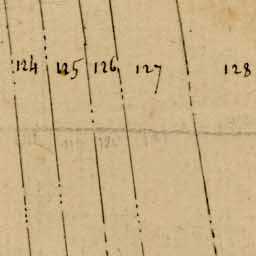 124 125 126 127 128